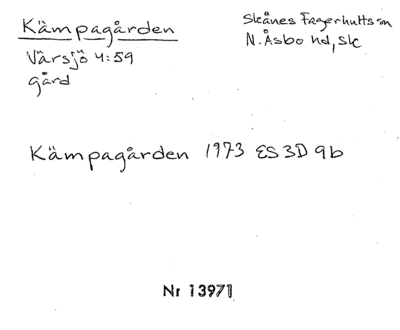 Kämpagården
Skånes Fagerhults sn
Värsjö 4:59
N. Åsbo hd, Sk
gård
Kämpagården 1973 ES 3D 9b
Nr 13971